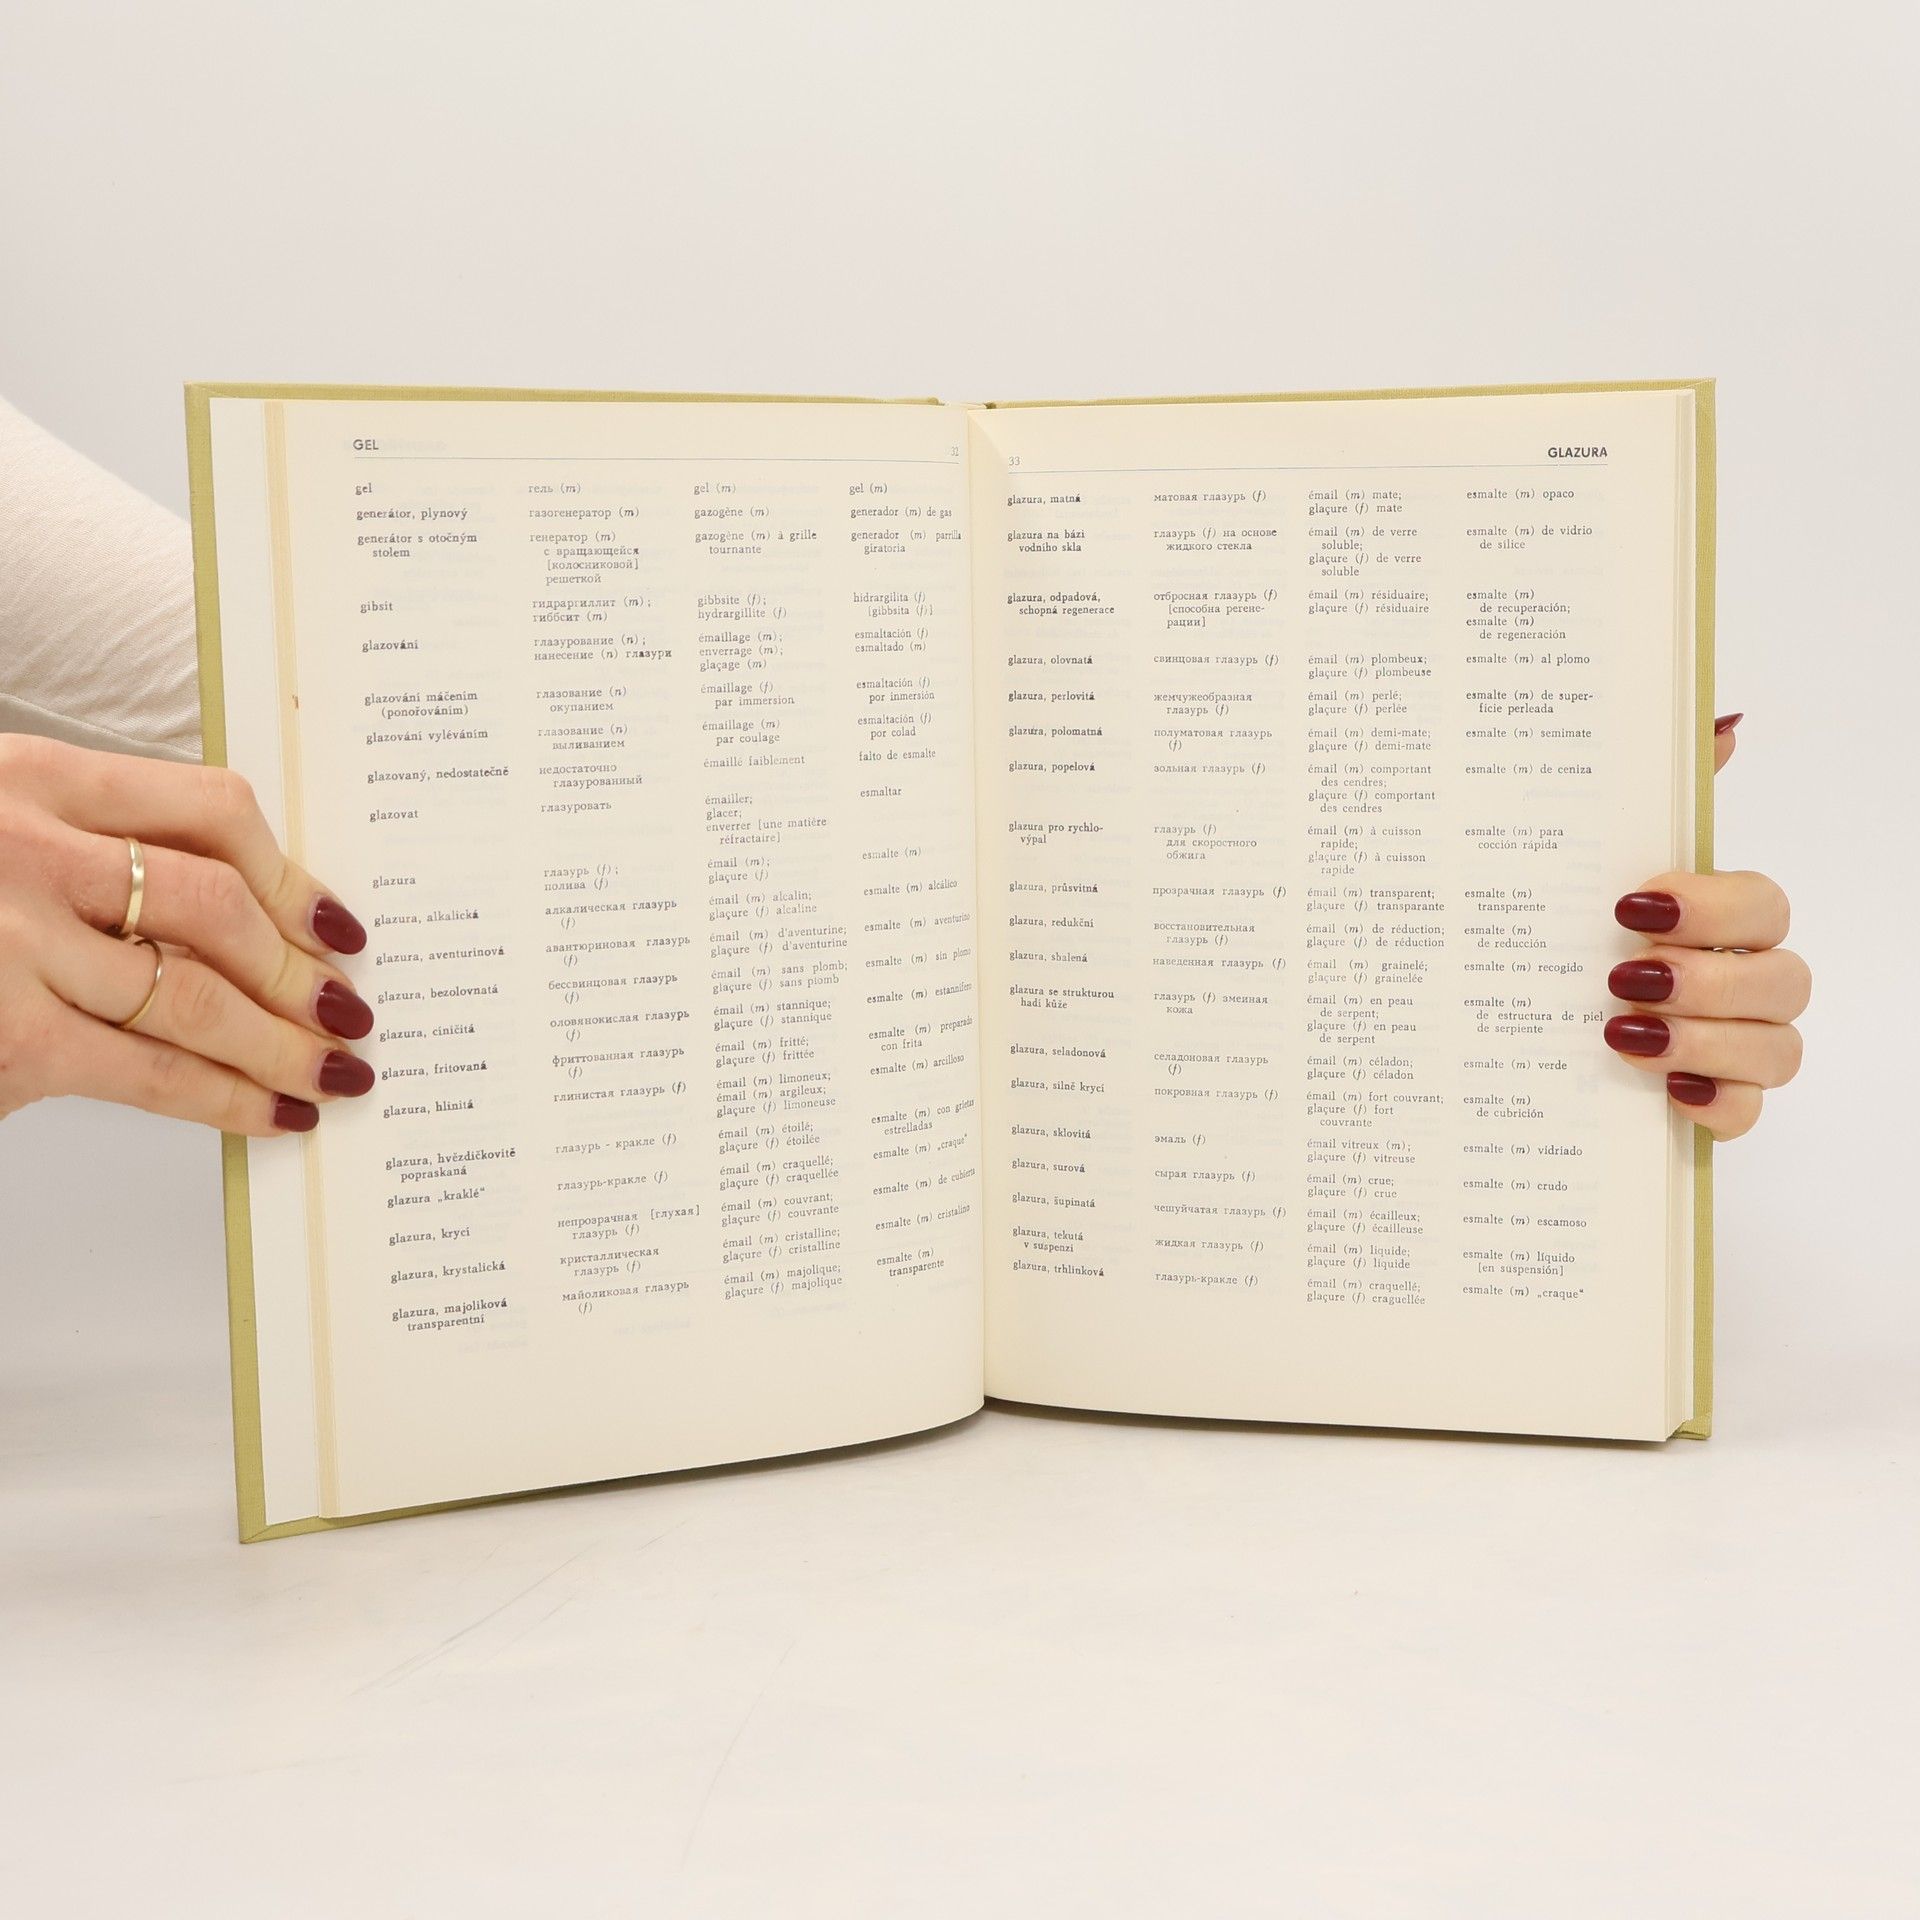 GEL 32
gel гель (m) gel (m) gel (m)
generátor, plynový газогенератор (m) gazogène (m) generador (m) de gas
generátor s otočným генератор (m) gazogène (m) à grille generador (m) parrilla
stolem с вращающейся tournante giratoria
[колосниковой]
решеткой
gibsit гидраргиллит (m); gibbsite (f); hidrargilita (f)
гиббсит (m) hydrargillite (f) [gibbsita (f)]
glazování глазурование (n); émaillage (m); esmaltación (f)
нанесение (n) глазури enverrage (m); esmaltado (m)
glaçage (m)
glazování máčením глазование (n) émaillage (f) esmaltación (f)
(ponořováním) окупанием par immersion por inmersión
glazování vyléváním глазование (n) émaillage (m) esmaltación (f)
выливанием par coulage por colad
glazovaný, nedostatečně недостаточно émaillé faiblement falto de esmalte
глазурованный
glazovat глазуровать émailler; esmaltar
glacer;
enverrer [une matière
réfractaire]
glazura глазурь (f); émail (m); esmalte (m)
полива (f) glaçure (f)
glazura, alkalická алкалическая глазурь émail (m) alcalin; esmalte (m) alcálico
(f) glaçure (f) alcaline
glazura, aventurinová авантюриновая глазурь émail (m) d'aventurine; esmalte (m) aventurino
(f) glaçure (f) d'aventurine
glazura, bezolovnatá бессвинцовая глазурь émail (m) sans plomb; esmalte (m) sin plomo
(f) glaçure (f) sans plomb
glazura, ciničitá оловянокислая глазурь émail (m) stannique; esmalte (m) estannífero
(f) glaçure (f) stannique
glazura, fritovaná фриттованная глазурь émail (m) fritté; esmalte (m) preparado
(f) glaçure (f) frittée con frita
glazura, hlinitá глинистая глазурь (f) émail (m) limoneux; esmalte (m) arcilloso
émail (m) argileux;
glaçure (f) limoneuse
glazura, hvězdičkovitě глазурь - кракле (f) émail (m) étoilé; esmalte (m) con grietas
popraskaná glaçure (f) étoilée estrelladas
glazura „kraklé“ глазурь-кракле (f) émail (m) craquellé; esmalte (m) „craque“
glaçure (f) craquellée
glazura, krycí непрозрачная [глухая] émail (m) couvrant; esmalte (m) de cubierta
глазурь (f) glaçure (f) couvrante
glazura, krystalická кристаллическая émail (m) cristalline; esmalte (m) cristalino
глазурь (f) glaçure (f) cristalline
glazura, majoliková майоликовая глазурь émail (m) majolique; esmalte (m)
transparentní (f) glaçure (f) majolique transparente
33 GLAZURA
glazura, matná матовая глазурь (f) émail (m) mate; esmalte (m) opaco
glaçure (f) mate
glazura na bázi глазурь (f) на основе émail (m) de verre esmalte (m) de vidrio
vodního skla жидкого стекла soluble; de sílice
glaçure (f) de verre
soluble
glazura, odpadová, отбросная глазурь (f) émail (m) résiduaire; esmalte (m)
schopná regenerace [способна регене- glaçure (f) résiduaire de recuperación;
рации] esmalte (m)
de regeneración
glazura, olovnatá свинцовая глазурь (f) émail (m) plombeux; esmalte (m) al plomo
glaçure (f) plombeuse
glazura, perlovitá жемчужеобразная émail (m) perlé; esmalte (m) de super-
глазурь (f) glaçure (f) perlée fície perleada
glazura, polomatná полуматовая глазурь émail (m) demi-mate; esmalte (m) semimate
(f) glaçure (f) demi-mate
glazura, popelová зольная глазурь (f) émail (m) comportant esmalte (m) de ceniza
des cendres;
glaçure (f) comportant
des cendres
glazura pro rychlo- глазурь (f) émail (m) à cuisson esmalte (m) para
výpal для скоростного rapide; cocción rápida
обжига glaçure (f) à cuisson
rapide
glazura, průsvitná прозрачная глазурь (f) émail (m) transparent; esmalte (m)
glaçure (f) transparante transparente
glazura, redukční восстановительная émail (m) de réduction; esmalte (m)
глазурь (f) glaçure (f) de réduction de reducción
glazura, sbalená наведенная глазурь (f) émail (m) grainelé; esmalte (m) recogido
glaçure (f) grainelée
glazura se strukturou глазурь (f) змеиная émail (m) en peau esmalte (m)
hadí kůže кожа de serpent; de estructura de piel
glaçure (f) en peau de serpiente
de serpent
glazura, seladonová селадоновая глазурь émail (m) céladon; esmalte (m) verde
(f) glaçure (f) céladon
glazura, silně krycí покровная глазурь (f) émail (m) fort couvrant; esmalte (m)
glaçure (f) fort de cubrición
couvrante
glazura, sklovitá эмаль (f) émail vitreux (m); esmalte (m) vidriado
glaçure (f) vitreuse
glazura, surová сырая глазурь (f) émail (m) crue; esmalte (m) crudo
glaçure (f) crue
glazura, šupinatá чешуйчатая глазурь (f) émail (m) écailleux; esmalte (m) escamoso
glaçure (f) écailleuse
glazura, tekutá жидкая глазурь (f) émail (m) liquide; esmalte (m) líquido
v suspenzi glaçure (f) liquide [en suspensión]
glazura, trhlinková глазурь-кракле (f) émail (m) craquellé; esmalte (m) „craque“
glaçure (f) craguellée